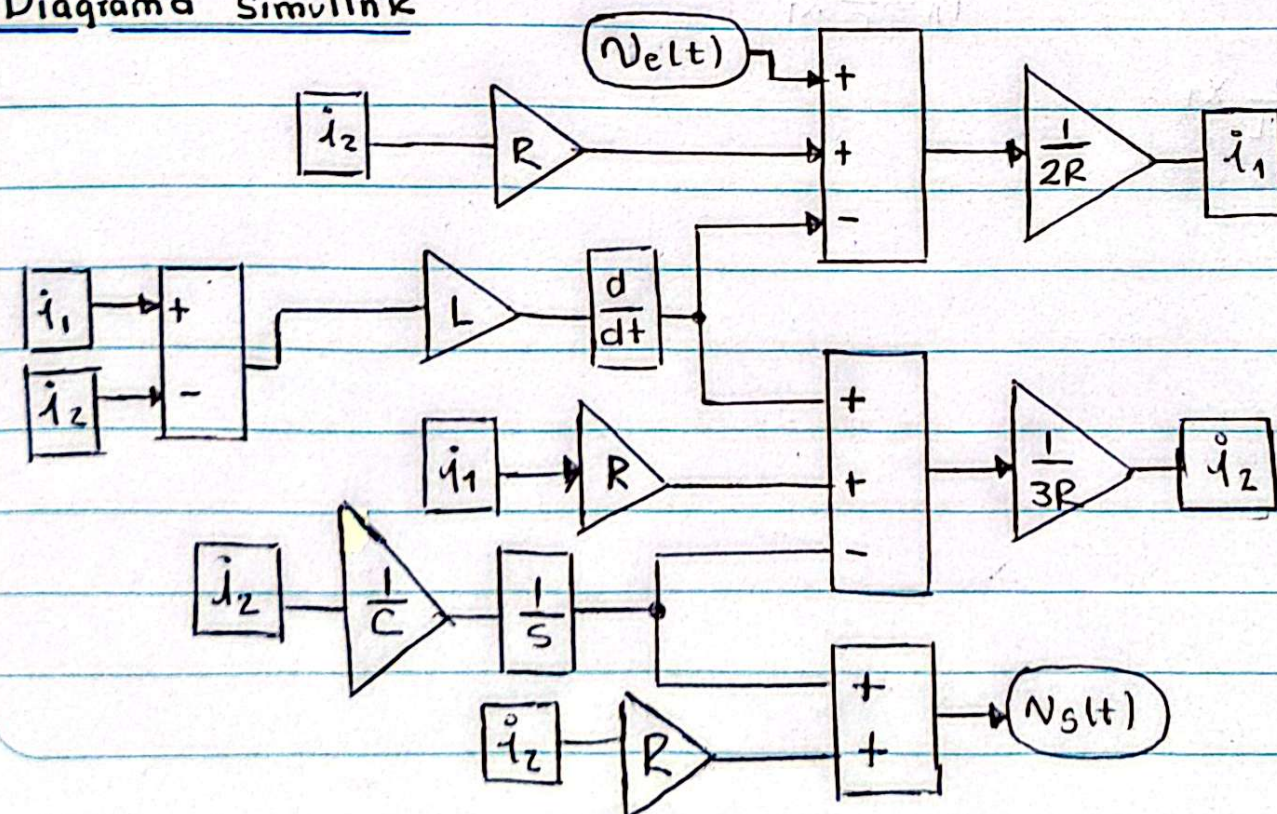 Diagrama Simulink
Ve(t)
+
i2
R
+
1/2R
i1
-
i1
+
L
d/dt
i2
-
+
i1
R
+
1/3R
i2
-
i2
1/C
1/S
+
Vs(t)
i2
R
+